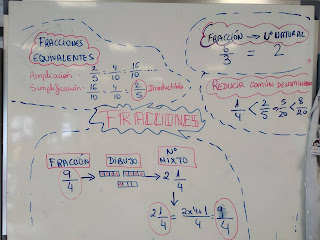 FRACCIONES
EQUIVALENTES
Amplicación: 2/5 = 4/10 = 16/10 ...
Simplificación: 16/10 = 4/10 = 2/5 Irreductible
FRACCIÓN → Nº NATURAL
6/3 = 2
REDUCIR COMÚN DENOMINADOR
1/4 < 2/5 = 5/20 < 8/20
FRACCIONES
FRACCIÓN DIBUJO Nº MIXTO
9/4 → → 2 1/4
2 1/4 = 2x4+1/4 = 9/4